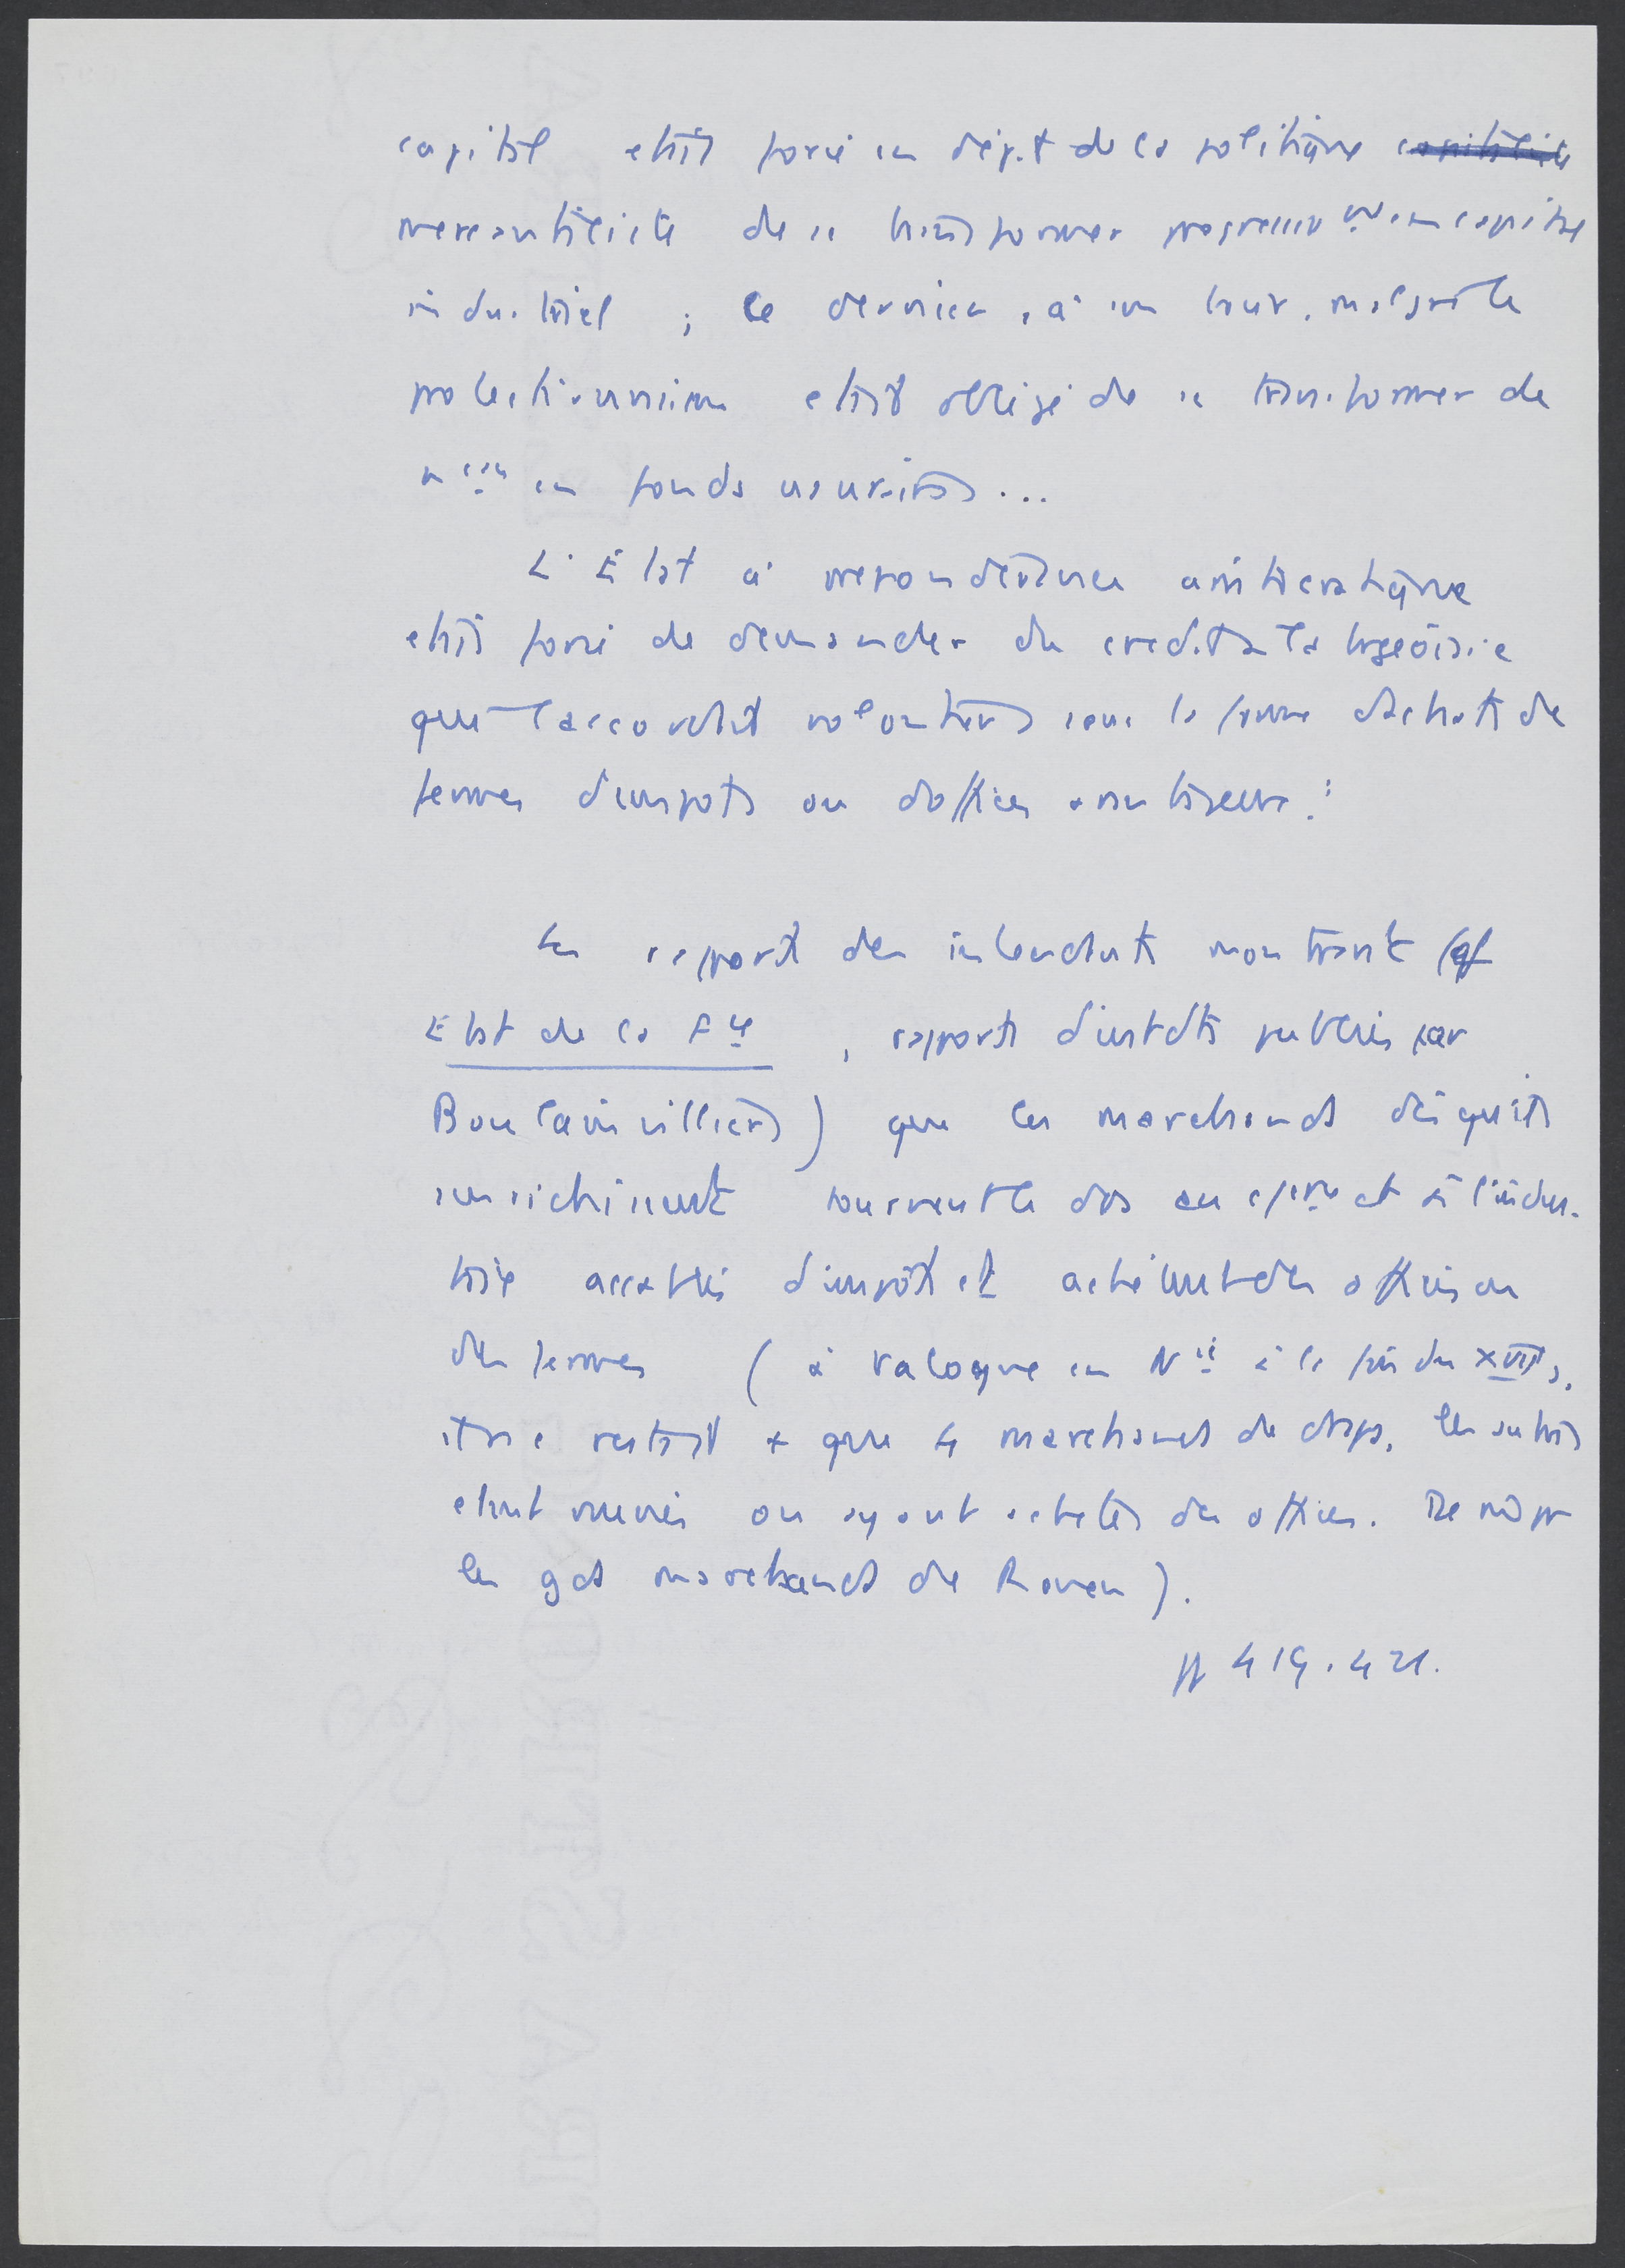 capital etait forcé en dépit de la politique ~~capitaliste~~
mercantiliste de se transformer progressivt en capital
industriel ; ce dernier, à son tour, malgré le
protectionnisme etait obligé de se transformer de
n^eau en fonds usuraires...
L'État à preponderance aristocratique
etait forcé de demander du credit à la bgeoisie
qui l'accordait volontiers sous la forme d'achats de
fermes d'impots ou d'offices avantageux."
Les rapports des intendants montrent (cf
Etat de la F^ce, rapports d'intdts publiés par
Boulainvilliers) que les marchands dès qu'ils
s'enrichissent tournent le dos au cmerce et à l'indus-
trie accablés d'impôts et achètent des offices ou
des fermes (à Valogne en N^die à la fin du XVII s,
il ne restait + que 4 marchands de draps, les autres
etant ruinés ou ayant achetés des offices. De même pr
les gds marchands de Rouen).
pp 419-421.